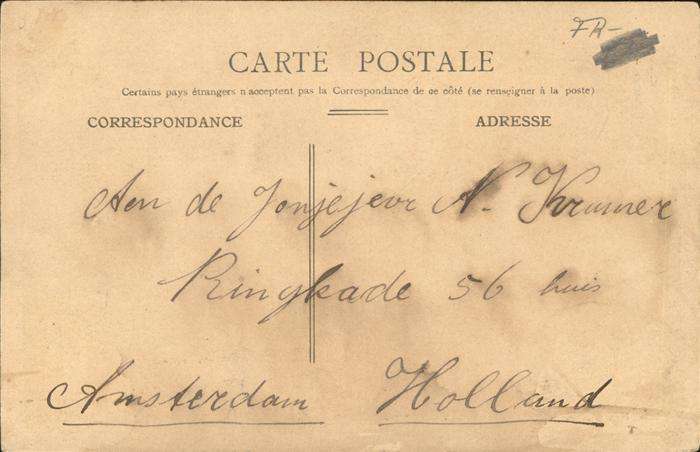 FR-
CARTE POSTALE
Certains pays étrangers n'acceptent pas la Correspondance de ce côté (se renseigner à la poste)
CORRESPONDANCE ADRESSE
Aen de Jonjejeur N. Krumer
Ringkade 56 huis
Amsterdam Holland